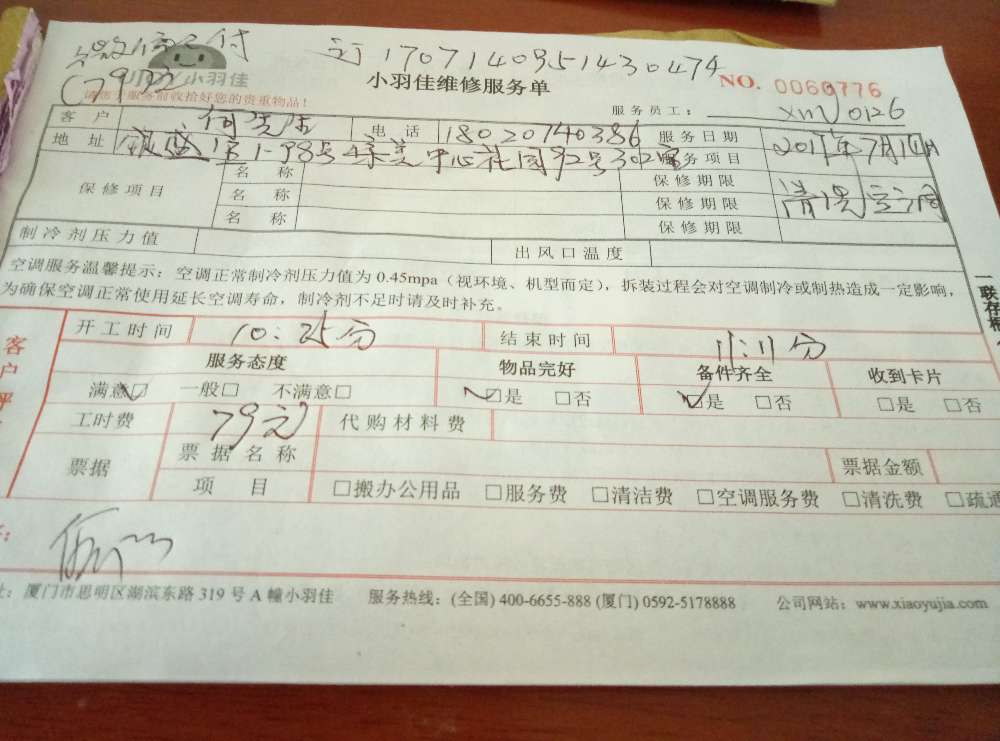 微信支付 订1707140951430474
(79元) 小羽佳 小羽佳维修服务单 NO. 0060776
请您于服务前收拾好您的贵重物品！ 服务员工： xmJ0126
客户 何先生 电话 18020740386 服务日期 2017年7月14日
地址 1-98号 中心花园 号302 服务项目 清洗空调
保修项目 名称 保修期限
名称 保修期限
名称 保修期限
制冷剂压力值 出风口温度
空调服务温馨提示：空调正常制冷剂压力值为 0.45mpa（视环境、机型而定），拆装过程会对空调制冷或制热造成一定影响，
为确保空调正常使用延长空调寿命，制冷剂不足时请及时补充。
一联存根
开工时间 10：25分 结束时间 11:11分
客户评
服务态度 物品完好 备件齐全 收到卡片
满意☑ 一般□ 不满意□ ☑是 □否 ☑是 □否 □是 □否
工时费 79元 代购材料费
票据 票据名称 票据金额
项目 □搬办公用品 □服务费 □清洁费 □空调服务费 □清洗费 □疏通
址：厦门市思明区湖滨东路 319 号 A 幢小羽佳 服务热线：(全国) 400-6655-888 (厦门) 0592-5178888 公司网站：www.xiaoyujia.com